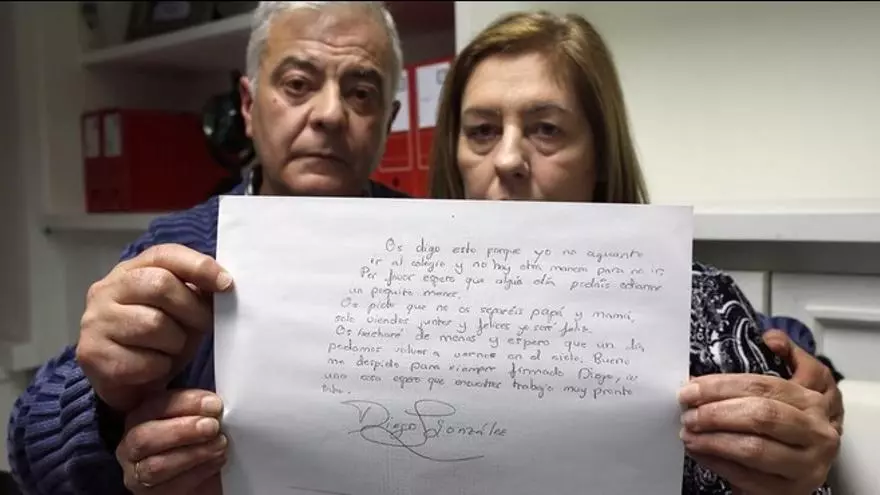 Os digo esto porque yo no aguanto
ir al colegio y no hay otra manera para no ir.
Por favor espero que algún día podáis odiarme
un poquito menos.
Os pido que no os separéis papá y mamá,
solo viéndoos juntos y felices yo seré feliz.
Os hecharé de menos y espero que un día
podamos volver a vernos en el cielo. Bueno
me despido para siempre firmado Diego, a
una cosa espero que encuentres trabajo muy pronto
Tata.
Diego González